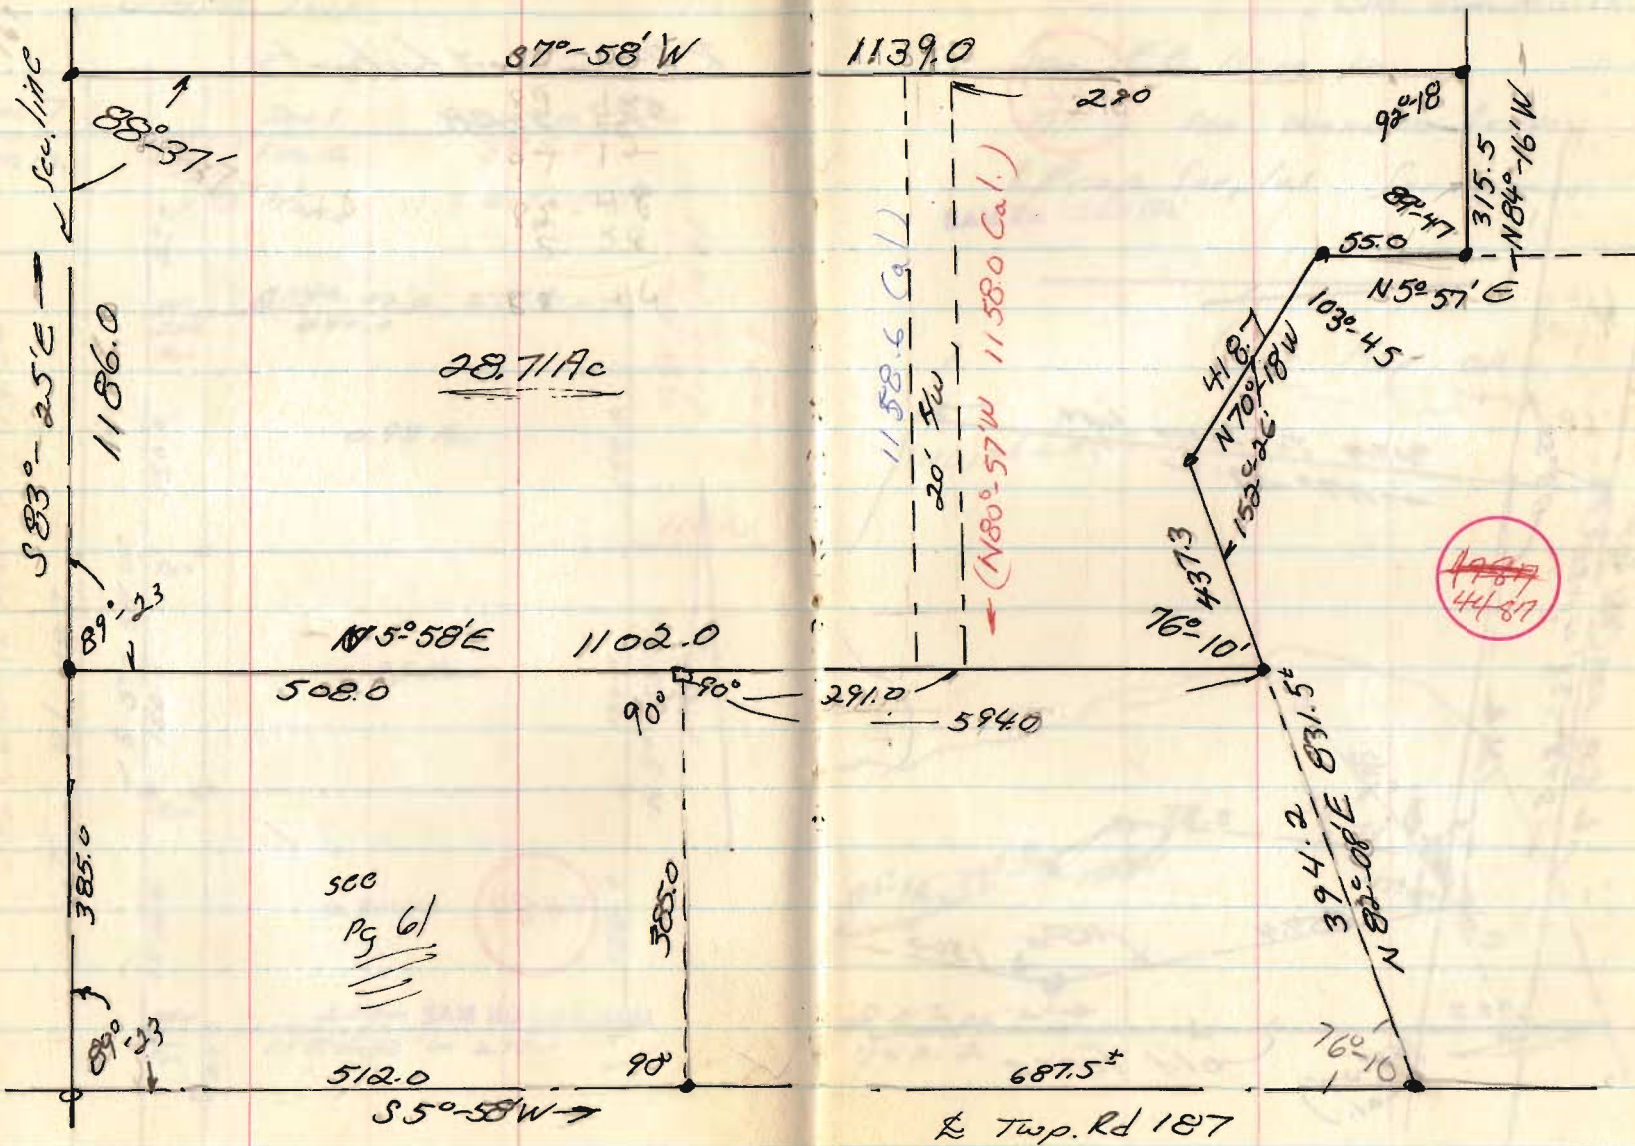 87°-58' W
1139.0
Sec. line
88°-37'
280
92°-18
315.5
N84°-16' W
89°-47
55.0
N5°-57' E
103°-45
S83°-25' E
1186.0
28.71 Ac
1158.6 Cal.
20' R/W
(N80°-57' W 1158.0 Cal.)
418.7
N70°-18' W
152°-26'
437.3
76°-10'
4487
89°-23
N5°-58' E
1102.0
508.0
90°
90°
291.0
594.0
831.5±
394.2
N 82°-08' E
385.0
see
Pg 61
385.0
89°-23
512.0
90°
687.5±
76°-10
S5°-58' W
℄ Twp. Rd 187